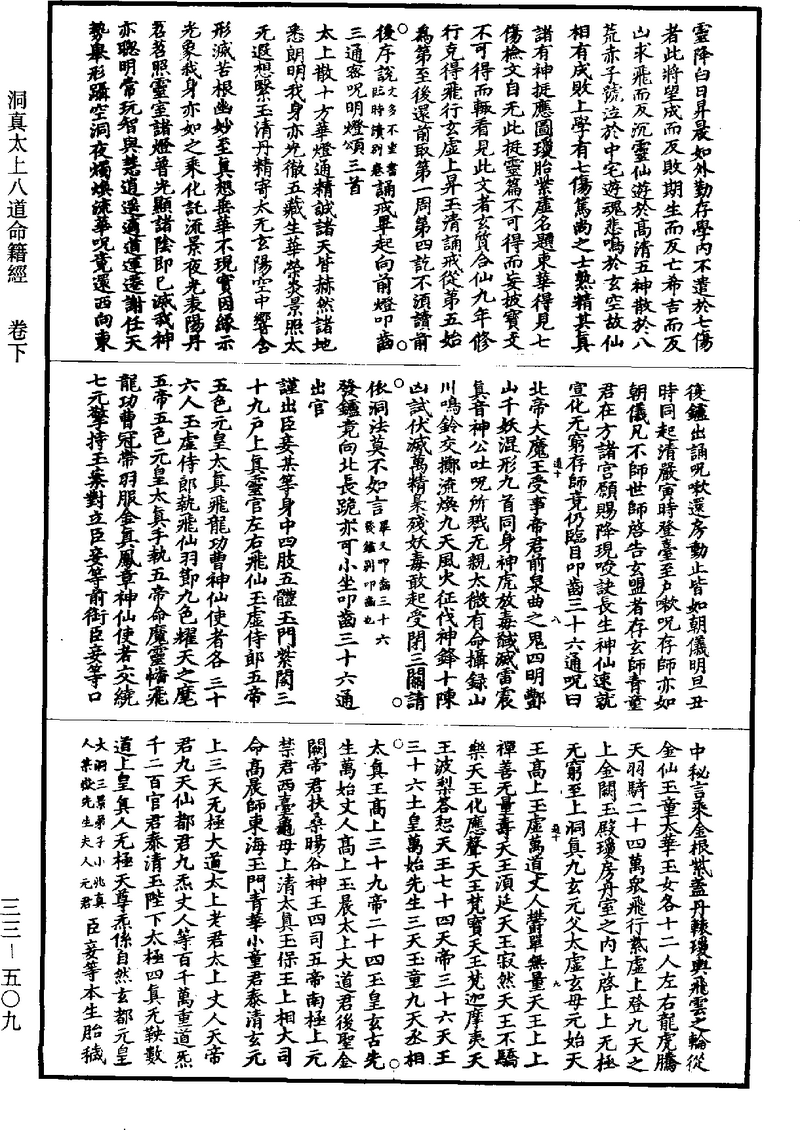 洞真太上八道命籍經　卷下
三三—五〇九
靈降白日昇晨如外勤存學內不遣於七傷
者此將望成而反敗期生而反亡希吉而反
凶求飛而反沉靈仙遊於高清五神散於八
荒赤子號泣於中宅遊魂悲鳴於玄空故仙
相有成敗上學有七傷篤尚之士熟精其真
諸有神挺應圖瓊胎紫虛名題東華得見七
傷檢文自无此挺靈篇不可得而妄披寶文
不可得而輒看見此文者玄質合仙九年修
行克得飛行玄虛上昇玉清誦戒從第五始
爲第至後還前取第一周第四訖不須讀前
後序說文多不重書臨時讀別卷誦戒畢起向前燈叩齒
三通密呪明燈頌三首
太上散十方華燈通精誠諸天皆赫然諸地
悉朗明我身亦光徹五藏生華榮炎景照太
无遐想繫玉清丹精寄太元玄陽空中響含
形滅苦根幽妙至真想垂華不現實因緣示
光象我身亦如之乘化託流景夜光表陽丹
苕苕照靈室諸燈普光顯諸陰即已滅我神
亦聰明常玩智與慧逍遥適道運遷謝任天
勢舉形躡空洞夜燭煥流華呪竟還西向東
後鑪出誦呪嗽還房動止皆如朝儀明旦丑
時同起清嚴寅時登臺至户嗽呪存師亦如
朝儀凡不師世師啓告玄盟者存玄師青童
君在方諸宮願賜降現咬訣長生神仙速就
宣化无窮存師竟仍臨目叩齒三十六通呪曰
北帝大魔王受事帝君前泉曲之鬼四明酆
山千妖混形九首同身神虎放毒馘滅雷震
真音神公吐呪所戮无親太微有命攝録山
川鳴鈴交擲流煥九天風火征伐神鋒十陳
凶試伏滅萬精梟殘妖毒敢起受閉三關請
依洞法莫不如言畢又叩齒三十六發鑪別叩齒也
發鑪竟向北長跪亦可小坐叩齒三十六通
出官
謹出臣妾某等身中四肢五體玉門紫闕三
十九戶上真靈官左右飛仙玉虛侍郎五帝
五色元皇太真飛龍功曹神仙使者各三十
六人玉虛侍郎執飛仙羽節九色耀天之麾
五帝五色元皇太真手執五帝命魔靈幡飛
龍功曹冠帶羽服金真鳳章神仙使者交繞
七元擎持玉案對立臣妾等前銜臣妾等口
中秘言乘金根紫蓋丹轅瓊輿飛雲之輪從
金仙玉童太華玉女各十二人左右龍虎騰
天羽騎二十四萬衆飛行䞘虛上登九天之
上金闕玉殿瓊房丹室之内上啓上上无極
无窮至上洞真九玄元父太虛玄母元始天
王高上玉虛萬道丈人鬱單無量天王上上
禪善无量壽天王須延天王寂然天王不驕
樂天王化應聲天王梵寶天王梵迦摩夷天
王波梨荅惒天王七十四天帝三十六天王
三十六土皇萬始先生三天玉童九天丞相
太真王高上三十九帝二十四玉皇玄古先
生萬始丈人高上玉晨太上大道君後聖金
闕帝君扶桑暘谷神王四司五帝南極上元
禁君西臺龜母上清太真玉保王上相大司
命高晨師東海玉門青華小童君泰清玄元
上三天无極大道太上老君太上丈人天帝
君九天仙都君九炁丈人等百千萬重道炁
千二百官君泰清玉陛下太極四真无鞅數
道上皇真人无極天尊炁係自然玄都元皇
大洞三景弟子小兆真人某嶽先生夫人元君臣妾等本生胎穢